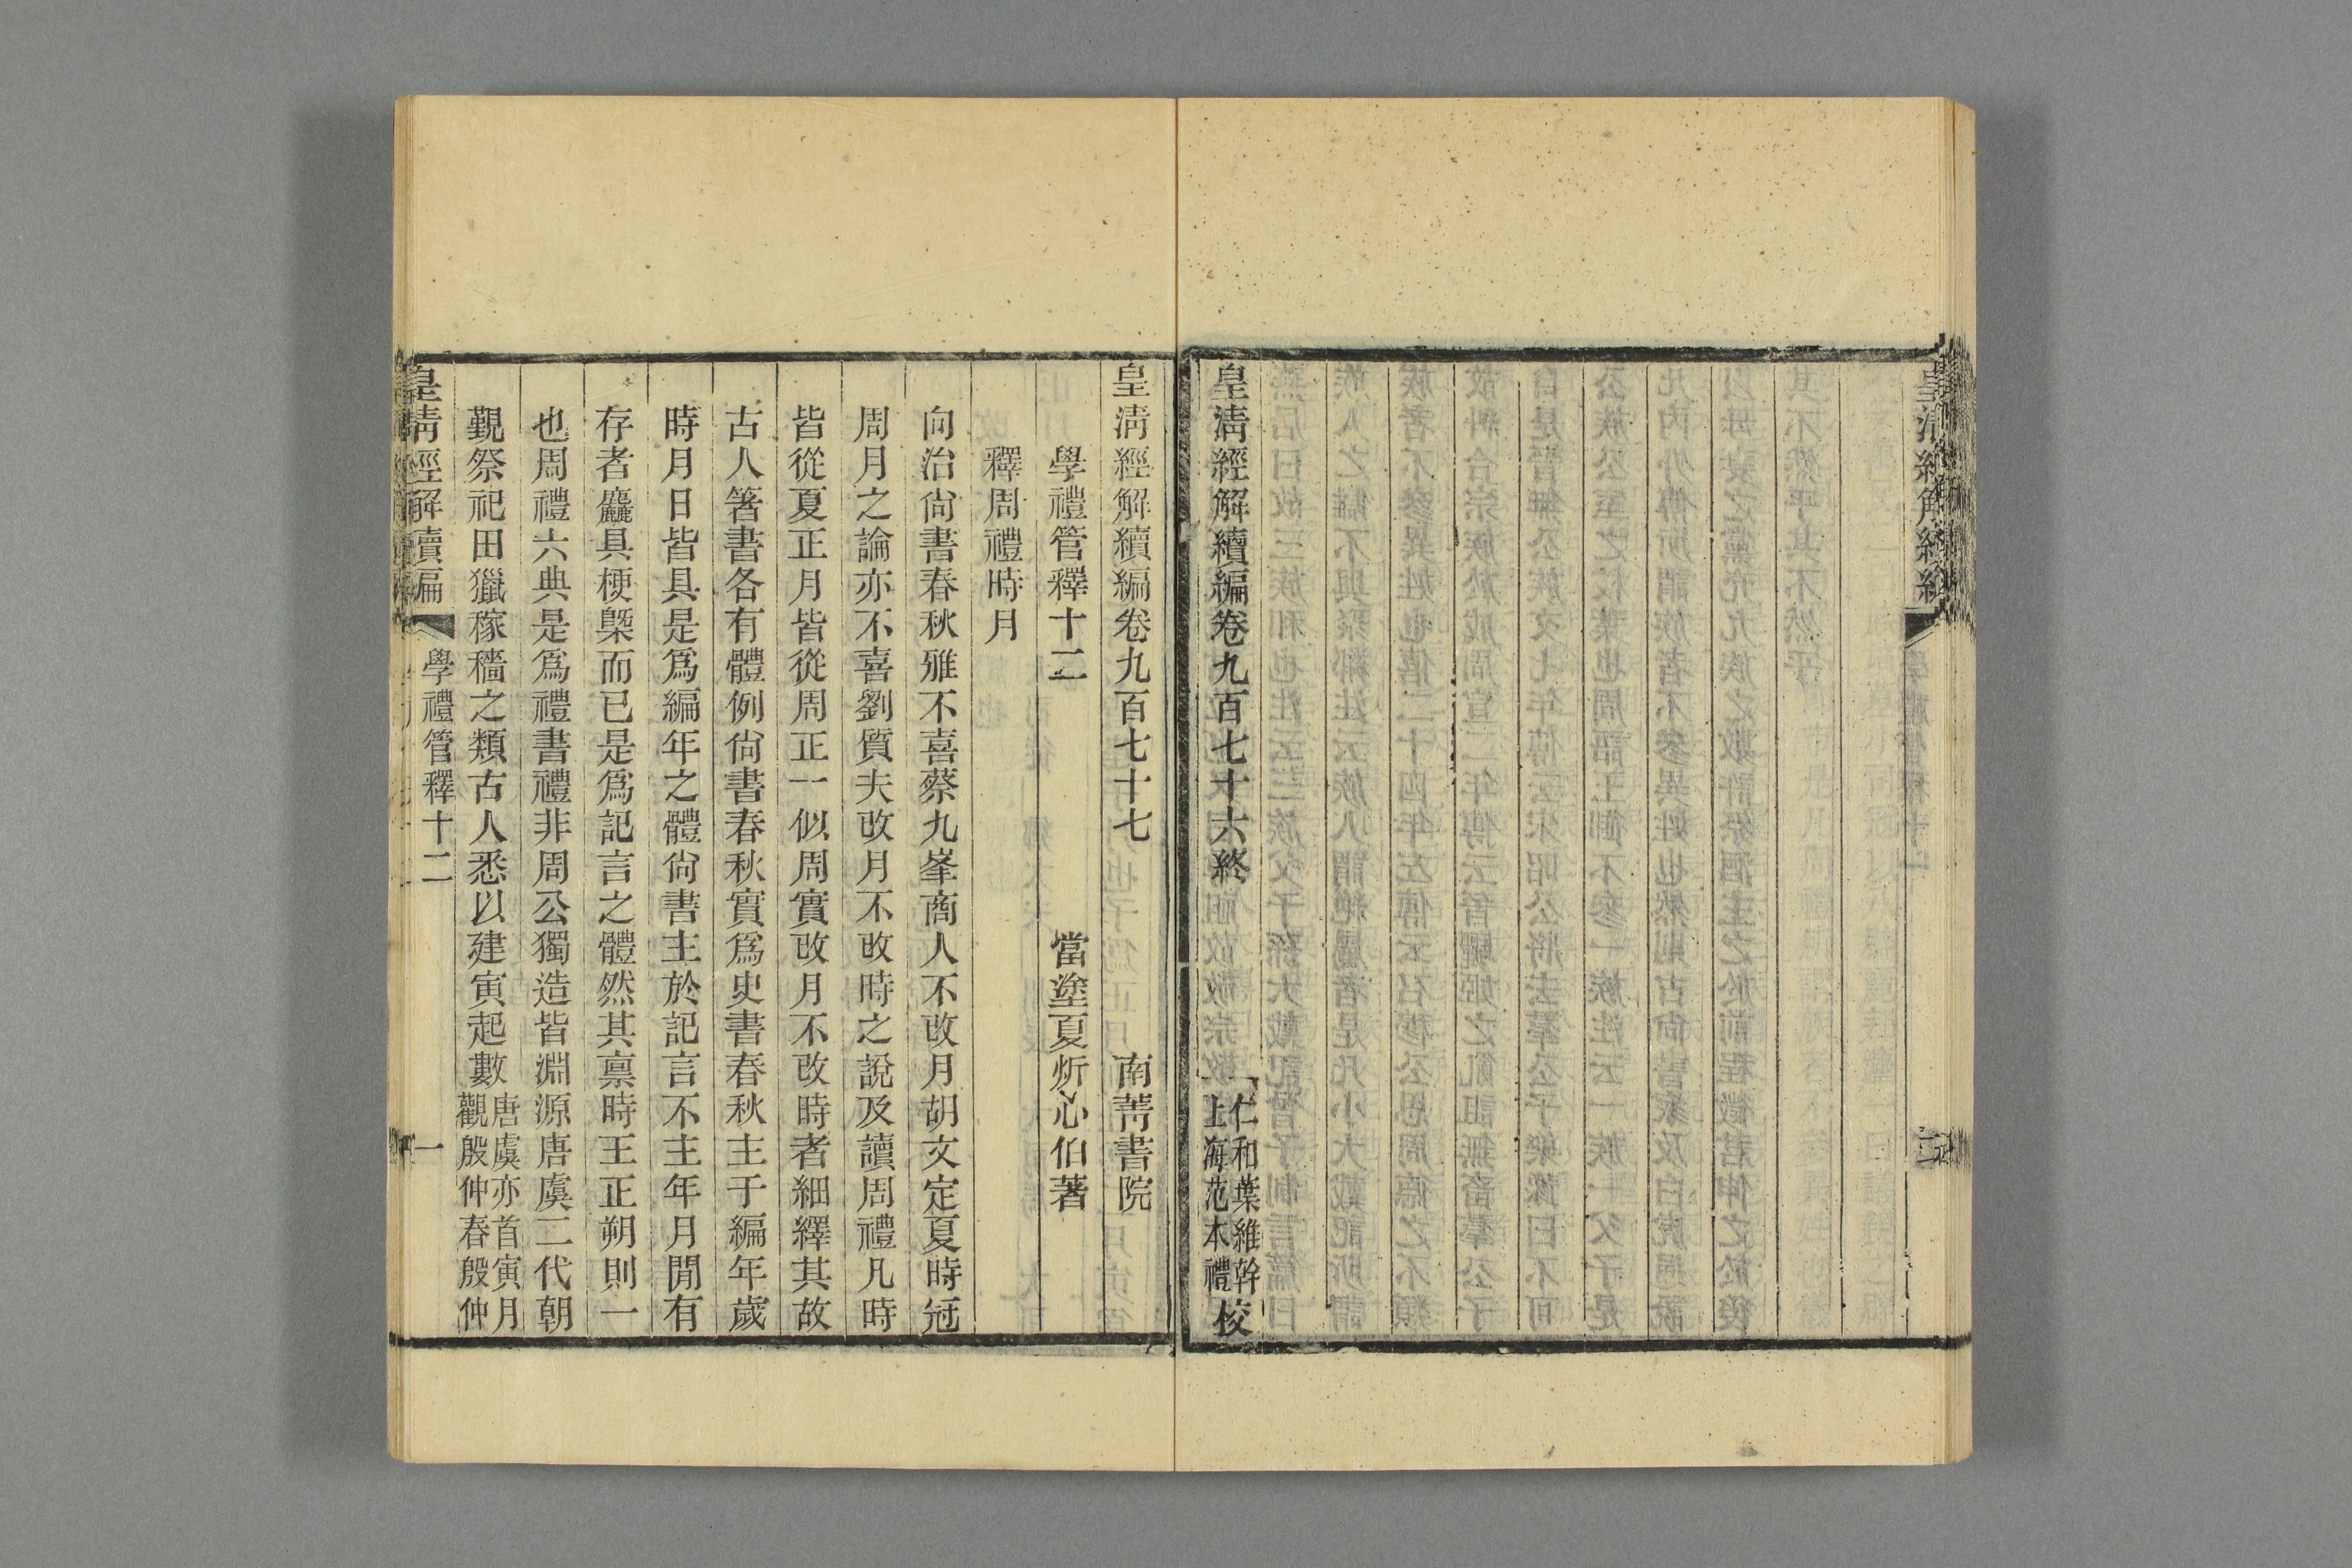 皇清經解續編卷九百七十六終
仁和葉維幹
上海范本禮
校
皇清經解續編卷九百七十七
南菁書院
學禮管釋十二
當塗夏炘心伯著
釋周禮時月
向治尙書春秋雅不喜蔡九峯商人不改月胡文定夏時冠
周月之論亦不喜劉質夫改月不改時之說及讀周禮凡時
皆從夏正月皆從周正一似周實改月不改時者細繹其故
古人箸書各有體例尙書春秋實爲史書春秋主于編年歲
時月日皆具是爲編年之體尙書主於記言不主年月閒有
存者麤具梗槩而已是爲記言之體然其稟時王正朔則一
也周禮六典是爲禮書禮非周公獨造皆淵源唐虞二代朝
覲祭祀田獵稼穡之類古人悉以建寅起數
唐虞亦首寅月
觀殷仲春殷仲
皇清經解續編
學禮管釋十二
一